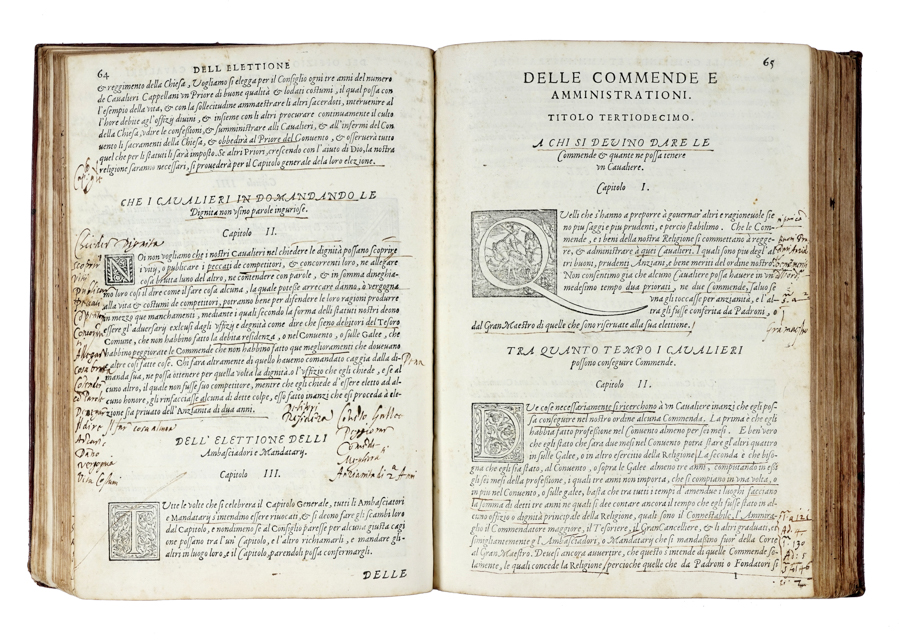 64
DELL ELETTIONE
& reggimento della Chiesa, Vogliamo si elegga per il Consiglio ogni tre anni del numero
de Caualieri Cappellani vn Priore di buone qualità & lodati costumi, il qual possa con
l'esempio della vita, & con la sollecitudine ammaestrare li altri sacerdoti, interuenire al
l'hore debite agl'offizy diuini, & insieme con li altri procurare continuamente il culto
della Chiesa, vdire le confessioni, & sumministrare alli Caualieri, & all'infermi del Con
uento li sacramenti della Chiesa, & obbedirà al Priore del Conuento, & osseruerà tutto
quel che per li statuti li sarà imposto. Se altri Priori, crescendo con l'aiuto di Dio, la nostra
religione saranno necessari, si prouederà per il Capitolo generale della loro elezione.
CHE I CAVALIERI IN DOMANDANDO LE
Dignità non vsino parole ingiuriose.
Capitolo II.
NOi non vogliamo che i nostri Caualieri nel chiedere le dignità possano scoprire
i vity, o publicare i peccati de competitori, & concorrenti loro, ne allegare
cosa brutta luno del altro, ne contendere con parole, & in somma dineghia-
mo loro così il dire come il fare cosa alcuna, la quale potesse arrecare danno, ò vergogna
alla vita & costumi de competitori, potranno bene per difendere le loro ragioni produrre
in mezzo que manchamenti, mediante i quali secondo la forma delli statuti nostri deono
essere gl'aduersary exclusi dagli vffizy & dignità come dire che sieno debitori del Tesoro
Comune, che non habbino fatto la debita residenza, o nel Conuento, o sulle Galee, che
habbino peggiorate le Commende che non habbino fatto que meglioramenti che doueuano
altre cosi fatte cose. Chi farà altramente di quello haueмо comandato caggia dalla di-
manda sua, ne possa ottenere per quella volta la dignità o l'vffizio che egli chiede, e se al
cuno altro, il quale non fusse suo competitore, mentre che egli chiede d'essere eletto ad al-
cuno honore, gli rinfacciasse alcuna di dette colpe, esso fatto inanzi che si proceda à ele-
zione sia priuato dell'Anzianità di dua anni.
DELL' ELETTIONE DELLI
Ambasciadori e Mandatary.
Capitolo III.
TVtte le volte che si celebrerà il Capitolo Generale, tutti li Ambasciatori
e Mandatary s'intendino essere riuocati, & si deono fare gli scambi loro
dal Capitolo, e nondimeno se al Consiglio paresse per alcuna giusta cagi
one possano tra l'un' Capitolo, e l'altro richiamarli, e mandare gli-
altri in luogo loro, e il Capitolo parendoli possa confermargli.
DELLE
65
DELLE COMMENDE E
AMMINISTRATIONI.
TITOLO TERTIODECIMO.
A CHI SI DEVINO DARE LE
Commende & quante ne possa tenere
vn Caualiere.
Capitolo I.
QVelli che s'hanno a preporre à gouernar' altri e ragioneuole sie
no piu saggi e piu prudenti, e perciò stabilimo. Che le Com-
mende, e i beni della nostra Religione si commettano à regge-
re, & administrare à quei Caualieri. I quali sono piu degl'al
tri buoni, prudenti Anziani, e bene meriti del ordine nostro.
Non consentimo già che alcuno Caualiere possa hauere in vn
medesimo tempo dua priorati, ne due Commende, saluo se
vna gli toccasse per anzianità, e l'al-
tra gli fusse conferita da Padroni, o
dal Gran Maestro di quelle che sono riseruate alla sua elettione.
TRA QUANTO TEMPO I CAVALIERI
possono conseguire Commende.
Capitolo II.
DVe cose necessariamente si ricerchono à vn Caualiere inanzi che egli pos-
sa conseguire nel nostro ordine alcuna Commenda. La prima è che egli
habbia fatto professione nel Conuento almeno per sei mesi. E ben'vero
che egli stato che sarà due mesi nel Conuento potrà stare gl'altri quattro
in sulle Galee, o in altro esercito della Religione. La seconda è che biso-
gna che egli sia stato, al Conuento, o sopra le Galee almeno tre anni, computando in essi
gli sei mesi della professione, i quali tre anni non importa, che si compiano in vna volta, o
in piu nel Conuento, o sulle galee, basta che tra tutti i tempi d'amendue i luoghi facciano
la somma di detti tre anni ne quali si dee contare ancora il tempo che egli fusse stato in al-
cuno offizio o dignità principale della Religione, quali sono il Connestabile, l'Ammira-
glio il Commendatore maggiore, il Tesoriere, il Gran Cancelliere, & li altri graduati, et
similmente gl'Ambasciadori, o Mandatary che si mandassino fuor' della Corte
al Gran Maestro. Deuesi ancora auuertire, che questo s'intende di quelle Commende so-
lamente, le quali concede la Religione, percioche quelle che da Padroni o Fondatori si